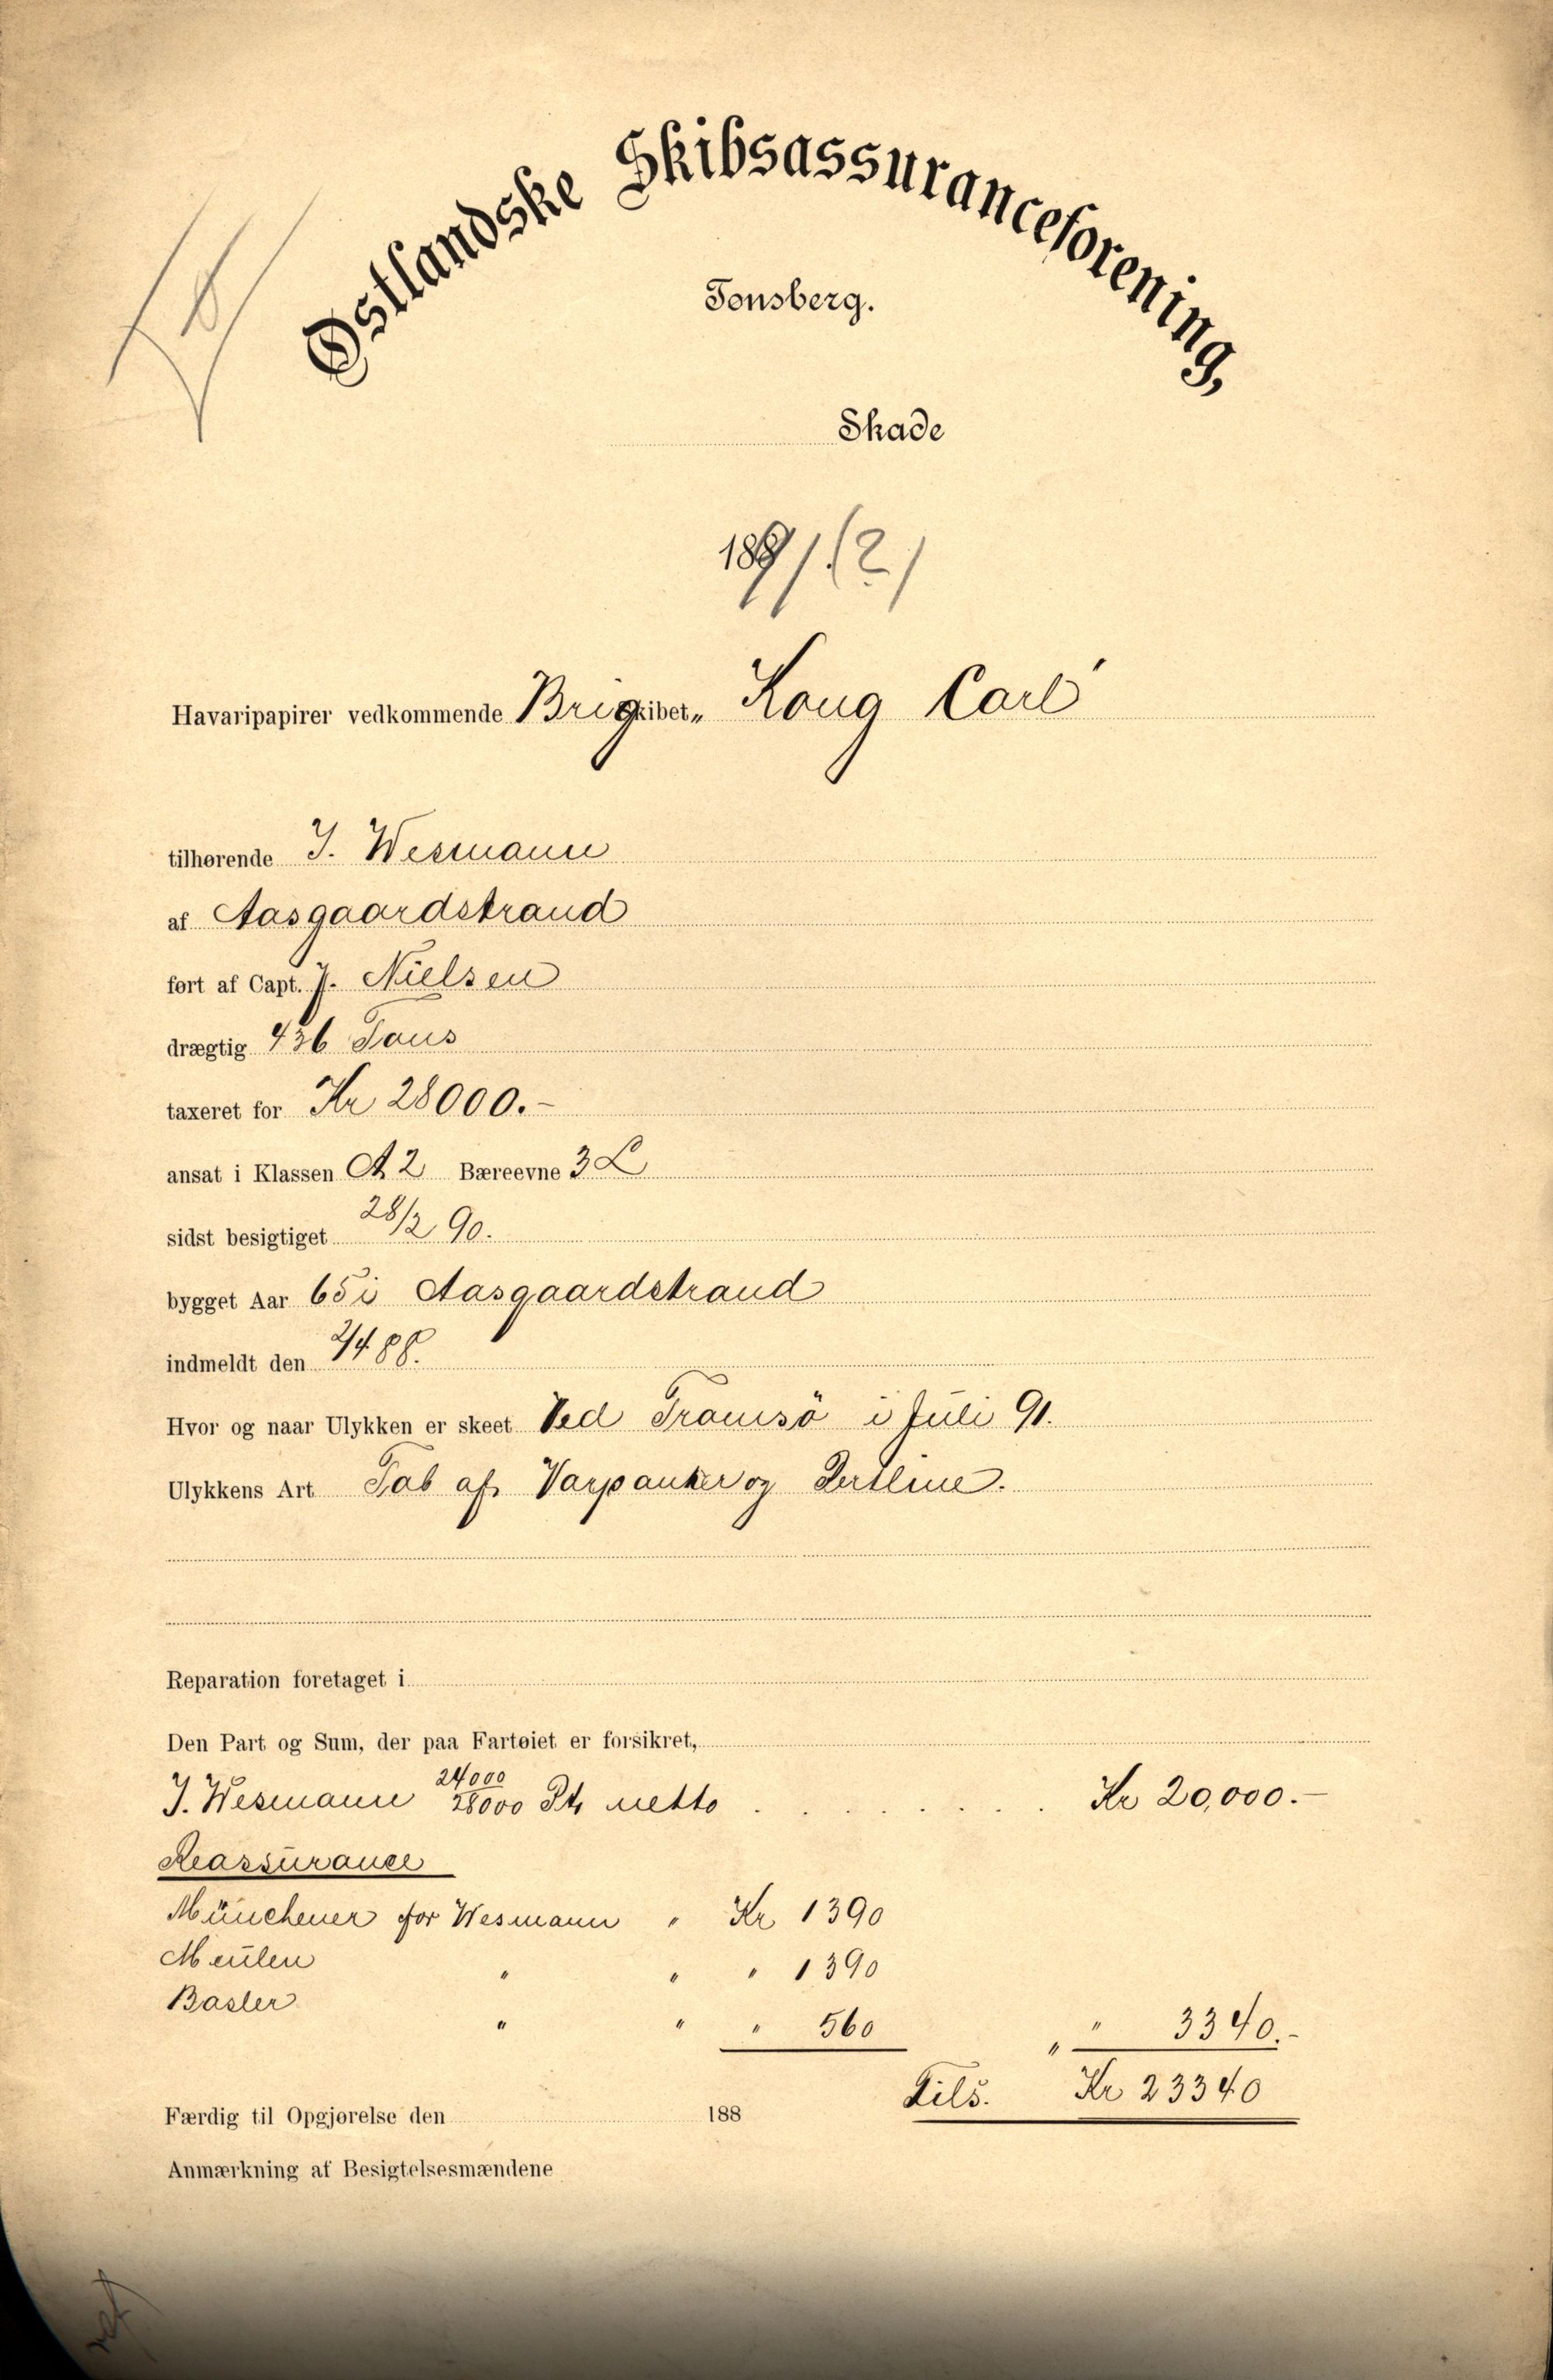 Østlandske Skibsassuranceforening,
Tønsberg.
Skade
1891 (2)
Havaripapirer vedkommende Brigskibet „Kong Carl"
tilhørende J. Wesmann
af Aasgaardstrand
ført af Capt. J. Nielsen
drægtig 436 Tons
taxeret for Kr 28000.-
ansat i Klassen A 2 Bæreevne 3 L
sidst besigtiget 28/2 90.
bygget Aar 65 i Aasgaardstrand
indmeldt den 2/4 88.
Hvor og naar Ulykken er skeet Ved Tromsö i Juli 91.
Ulykkens Art Tab af Varpanker og Pertline.
Reparation foretaget i
Den Part og Sum, der paa Fartøiet er forsikret,
J. Wesmann 24000/28000 Pt netto . . . . . . . . Kr 20,000.-
Reassurance
Münchener for Wesmann " Kr 1390
Meulen " " " 1390
Basler " " " 560 " " 3340.-
Tils. Kr 23340
Færdig til Opgjørelse den 188
Anmærkning af Besigtelsesmændene